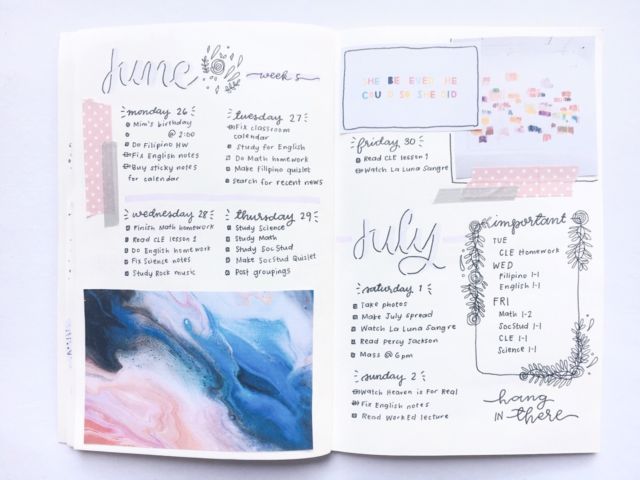 June
week 5
monday 26
Mim's birthday
@ 2:00
Do Filipino HW
Fix English notes
Buy sticky notes
for calendar
tuesday 27
Fix classroom
calendar
Study for English
Do Math homework
Make Filipino quizlet
Search for recent news
wednesday 28
Finish Math homework
Read CLE lesson 1
Do English homework
Fix Science notes
Study Rock music
thursday 29
Study Science
Study Math
Study SocStud
Make SocStud Quizlet
Post groupings
SHE BELIEVED SHE
COULD SO SHE DID
friday 30
Read CLE lesson 1
Watch La Luna Sangre
July
saturday 1
Take photos
Make July spread
Watch La Luna Sangre
Read Percy Jackson
Mass @ 6pm
sunday 2
Watch Heaven is For Real
Fix English notes
Read WorkEd lecture
important
TUE
CLE Homework
WED
Filipino 1-1
English 1-1
FRI
Math 1-2
SocStud 1-1
CLE 1-1
Science 1-1
hang
IN there